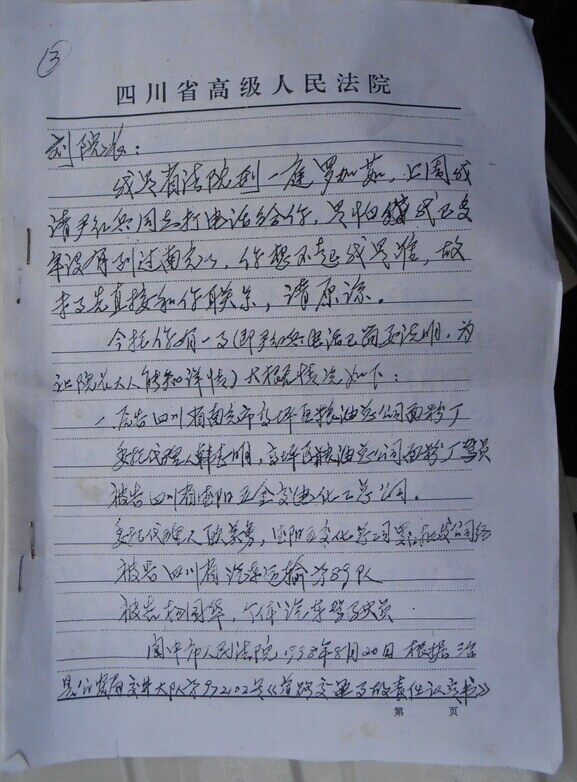 ③
四川省高级人民法院
刘院长：
我是省法院刑一庭罗加茹，上周我
请尹红兵同志打电话给你，是怕我已多
年没有到过南充，你想不起我是谁，故
未事先直接和你联系，请原谅。
今托你有一事(即尹红兵电话已简要说明，为
让院长大人能知详情)大概情况如下：
一、原告四川省南充市高坪区粮油总公司面粉厂
委托代理人韩李明，高坪区粮油总公司面粉厂驾员
被告四川省安阳五金交电化工总公司。
委托代理人，五交化总公司批发公司经
被告四川省汽车运输第89队
被告杨国华，个体汽车驾驶员
阆中市人民法院1998年8月20日根据
交警大队第972102号《道路交通事故责任认定书》
第 页